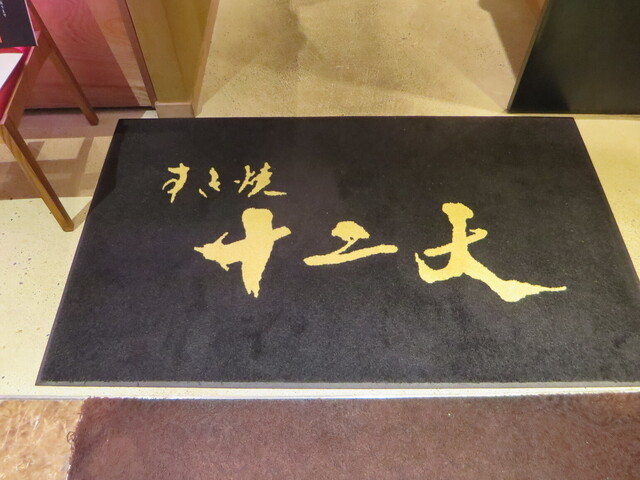 すき焼
十二天